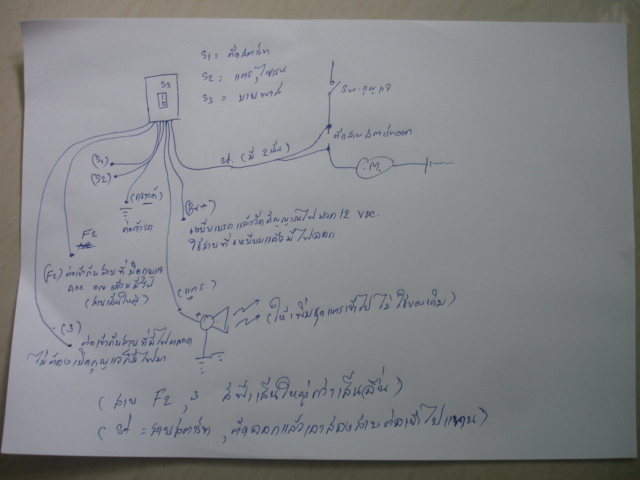 S1 = ตัดสตาร์ท
S2 = แตร, ไซเรน
S3 = บายพาส
S3
SW. กุญแจ
ตัดสายสตาร์ทออก
M
st. (มี 2 เส้น)
(S1)
(S2)
(Br+)
ต่อตัวรถ
เหยียบเบรก แล้ววัดสัญญาณไฟบวก 12 VDC.
ใช้สายที่เหยียบแล้วมีไฟออก
F2
(F2) ต่อเข้ากับสายที่บิดกุญแจ
(สายเส้นใหญ่)
(แตร)
(ให้เพิ่มชุดแตรเข้าไป ไม่ใช้ของเดิม)
(3)
ต่อเข้ากับสายที่มีไฟตลอด
ไม่ต้องเปิดกุญแจก็มีไฟมา
(สาย F2, 3 สีฟ้าเส้นใหญ่กว่าเส้นอื่น)
(st = สายสตาร์ท, ตัดออกแล้วเอาสองสายต่อเข้าไปแทน)